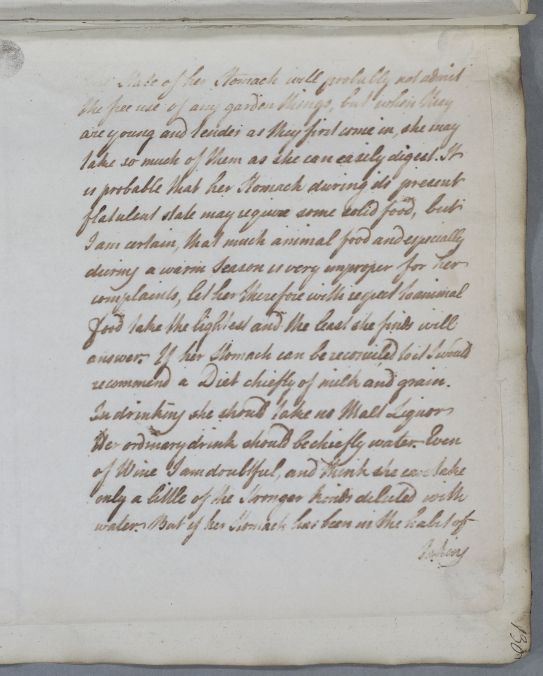 State of her Stomach will probably not admit
the free use of any garden things, but when they
are young and tender as they first come in, she may
take so much of them as she can easily digest. It
is probable that her Stomach during its present
flatulent state may require some solid food, but
I am certain, that much animal food and especially
during a warm Season is very improper for her
complaints, let her therefore with respect to animal
food take the lightest and the least she finds will
answer. If her Stomach can be reconciled to it I would
recommend a Diet chiefly of milk and grain.
In drinking she should take no Malt Liquor
Her ordinary drink should be chiefly water. Even
of Wine I am doubtful, and think she can take
only a little of the Stronger kinds diluted with
water. But if her Stomach has been in the habit of